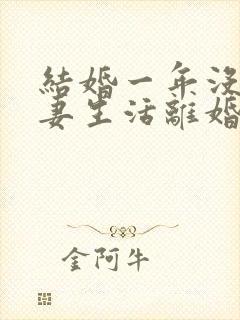 結婚一年沒
妻生活離婚
金阿牛